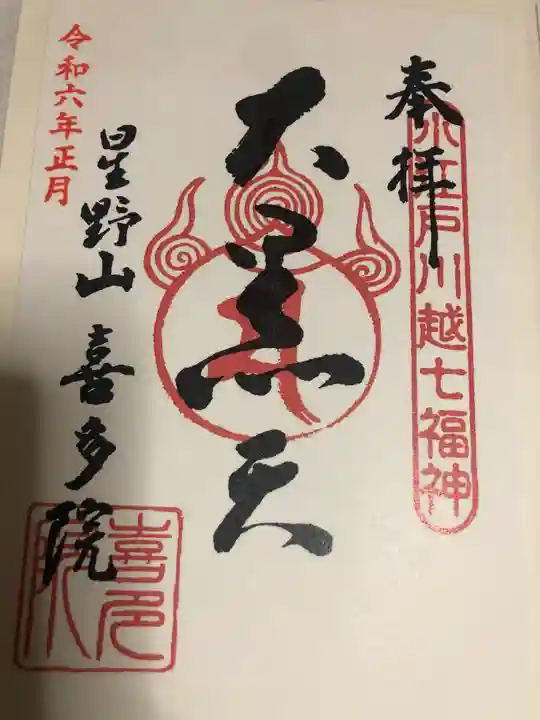 奉拝
小江戸川越七福神
大黒天
令和六年正月
星野山 喜多院
喜多院